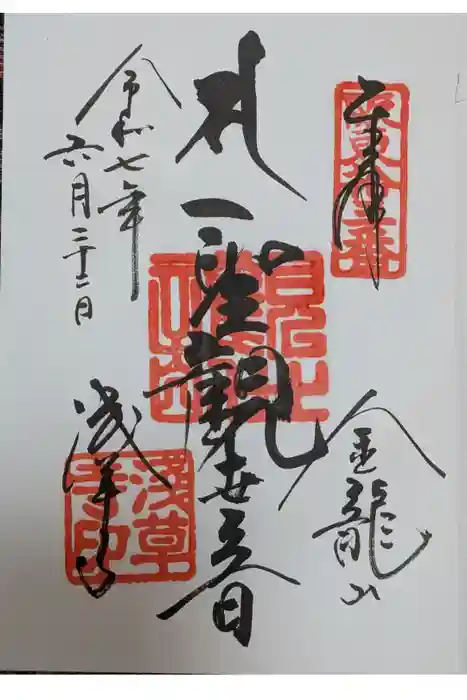 奉拝
金龍山
聖觀世音
令和七年
六月二十二日
浅草寺
淺草寺印